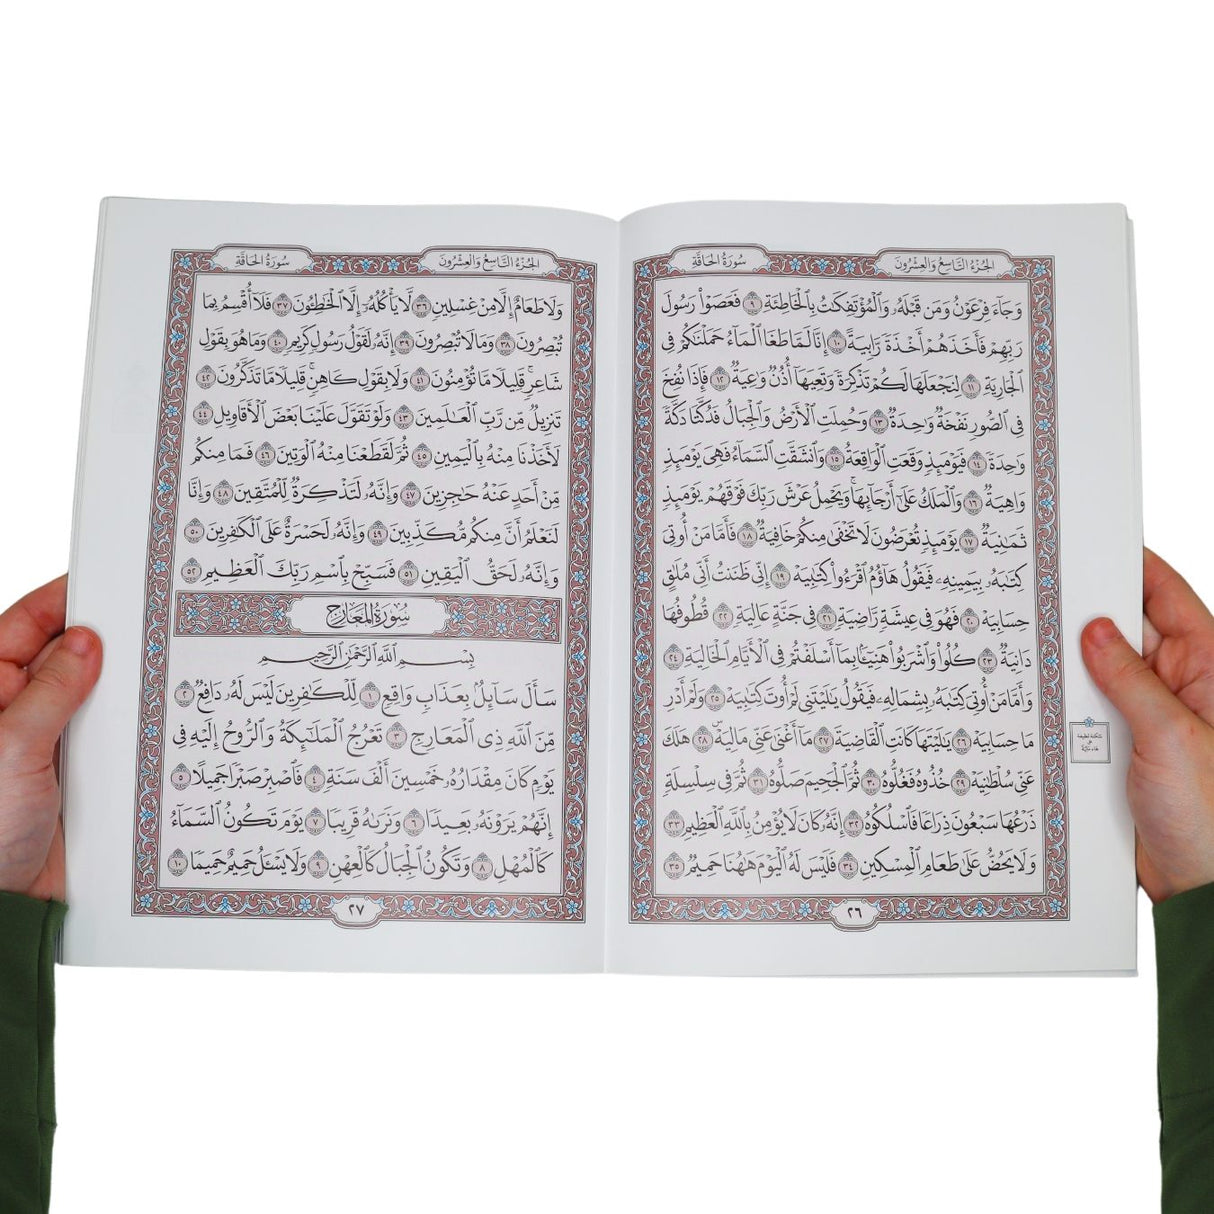 الجزء التاسع والعشرون
سورة الحاقة
وَجَآءَ فِرْعَوْنُ وَمَن قَبْلَهُۥ وَٱلْمُؤْتَفِكَٰتُ بِٱلْخَاطِئَةِ ٩ فَعَصَوْا۟ رَسُولَ
رَبِّهِمْ فَأَخَذَهُمْ أَخْذَةً رَّابِيَةً ١٠ إِنَّا لَمَّا طَغَا ٱلْمَآءُ حَمَلْنَٰكُمْ فِى
ٱلْجَارِيَةِ ١١ لِنَجْعَلَهَا لَكُمْ تَذْكِرَةً وَتَعِيَهَآ أُذُنٌ وَٰعِيَةٌ ١٢ فَإِذَا نُفِخَ
فِى ٱلصُّورِ نَفْخَةٌ وَٰحِدَةٌ ١٣ وَحُمِلَتِ ٱلْأَرْضُ وَٱلْجِبَالُ فَدُكَّتَا دَكَّةً
وَٰحِدَةً ١٤ فَيَوْمَئِذٍ وَقَعَتِ ٱلْوَاقِعَةُ ١٥ وَٱنشَقَّتِ ٱلسَّمَآءُ فَهِىَ يَوْمَئِذٍ
وَاهِيَةٌ ١٦ وَٱلْمَلَكُ عَلَىٰٓ أَرْجَآئِهَا وَيَحْمِلُ عَرْشَ رَبِّكَ فَوْقَهُمْ يَوْمَئِذٍ
ثَمَٰنِيَةٌ ١٧ يَوْمَئِذٍ تُعْرَضُونَ لَا تَخْفَىٰ مِنكُمْ خَافِيَةٌ ١٨ فَأَمَّا مَنْ أُوتِىَ
كِتَٰبَهُۥ بِيَمِينِهِۦ فَيَقُولُ هَآؤُمُ ٱقْرَءُوا۟ كِتَٰبِيَهْ ١٩ إِنِّى ظَنَنتُ أَنِّى مُلَٰقٍ
حِسَابِيَهْ ٢٠ فَهُوَ فِى عِيشَةٍ رَّاضِيَةٍ ٢١ فِى جَنَّةٍ عَالِيَةٍ ٢٢ قُطُوفُهَا
دَانِيَةٌ ٢٣ كُلُوا۟ وَٱشْرَبُوا۟ هَنِيٓـًٔۢا بِمَآ أَسْلَفْتُمْ فِى ٱلْأَيَّامِ ٱلْخَالِيَةِ ٢٤
وَأَمَّا مَنْ أُوتِىَ كِتَٰبَهُۥ بِشِمَالِهِۦ فَيَقُولُ يَٰلَيْتَنِى لَمْ أُوتَ كِتَٰبِيَهْ ٢٥ وَلَمْ أَدْرِ
مَا حِسَابِيَهْ ٢٦ يَٰلَيْتَهَا كَانَتِ ٱلْقَاضِيَةَ ٢٧ مَآ أَغْنَىٰ عَنِّى مَالِيَهْ ٢٨ هَلَكَ
عَنِّى سُلْطَٰنِيَهْ ٢٩ خُذُوهُ فَغُلُّوهُ ٣٠ ثُمَّ ٱلْجَحِيمَ صَلُّوهُ ٣١ ثُمَّ فِى سِلْسِلَةٍ
ذَرْعُهَا سَبْعُونَ ذِرَاعًا فَٱسْلُكُوهُ ٣٢ إِنَّهُۥ كَانَ لَا يُؤْمِنُ بِٱللَّهِ ٱلْعَظِيمِ ٣٣
وَلَا يَحُضُّ عَلَىٰ طَعَامِ ٱلْمِسْكِينِ ٣٤ فَلَيْسَ لَهُ ٱلْيَوْمَ هَٰهُنَا حَمِيمٌ ٣٥
٢٦
الجزء التاسع والعشرون
سورة الحاقة
وَلَا طَعَامٌ إِلَّا مِنْ غِسْلِينٍ ٣٦ لَّا يَأْكُلُهُۥٓ إِلَّا ٱلْخَٰطِـُٔونَ ٣٧ فَلَآ أُقْسِمُ بِمَا
تُبْصِرُونَ ٣٨ وَمَا لَا تُبْصِرُونَ ٣٩ إِنَّهُۥ لَقَوْلُ رَسُولٍ كَرِيمٍ ٤٠ وَمَا هُوَ بِقَوْلِ
شَاعِرٍ قَلِيلًا مَّا تُؤْمِنُونَ ٤١ وَلَا بِقَوْلِ كَاهِنٍ قَلِيلًا مَّا تَذَكَّرُونَ ٤٢
تَنزِيلٌ مِّن رَّبِّ ٱلْعَٰلَمِينَ ٤٣ وَلَوْ تَقَوَّلَ عَلَيْنَا بَعْضَ ٱلْأَقَاوِيلِ ٤٤
لَأَخَذْنَا مِنْهُ بِٱلْيَمِينِ ٤٥ ثُمَّ لَقَطَعْنَا مِنْهُ ٱلْوَتِينَ ٤٦ فَمَا مِنكُم
مِّنْ أَحَدٍ عَنْهُ حَٰجِزِينَ ٤٧ وَإِنَّهُۥ لَتَذْكِرَةٌ لِّلْمُتَّقِينَ ٤٨ وَإِنَّا
لَنَعْلَمُ أَنَّ مِنكُم مُّكَذِّبِينَ ٤٩ وَإِنَّهُۥ لَحَسْرَةٌ عَلَى ٱلْكَٰفِرِينَ ٥٠
وَإِنَّهُۥ لَحَقُّ ٱلْيَقِينِ ٥١ فَسَبِّحْ بِٱسْمِ رَبِّكَ ٱلْعَظِيمِ ٥٢
سورة المعارج
بِسْمِ ٱللَّهِ ٱلرَّحْمَٰنِ ٱلرَّحِيمِ
سَأَلَ سَآئِلٌۢ بِعَذَابٍ وَاقِعٍ ١ لِّلْكَٰفِرِينَ لَيْسَ لَهُۥ دَافِعٌ ٢
مِّنَ ٱللَّهِ ذِى ٱلْمَعَارِجِ ٣ تَعْرُجُ ٱلْمَلَٰٓئِكَةُ وَٱلرُّوحُ إِلَيْهِ فِى
يَوْمٍ كَانَ مِقْدَارُهُۥ خَمْسِينَ أَلْفَ سَنَةٍ ٤ فَٱصْبِرْ صَبْرًا جَمِيلًا ٥
إِنَّهُمْ يَرَوْنَهُۥ بَعِيدًا ٦ وَنَرَىٰهُ قَرِيبًا ٧ يَوْمَ تَكُونُ ٱلسَّمَآءُ
كَٱلْمُهْلِ ٨ وَتَكُونُ ٱلْجِبَالُ كَٱلْعِهْنِ ٩ وَلَا يَسْـَٔلُ حَمِيمٌ حَمِيمًا ١٠
٢٧